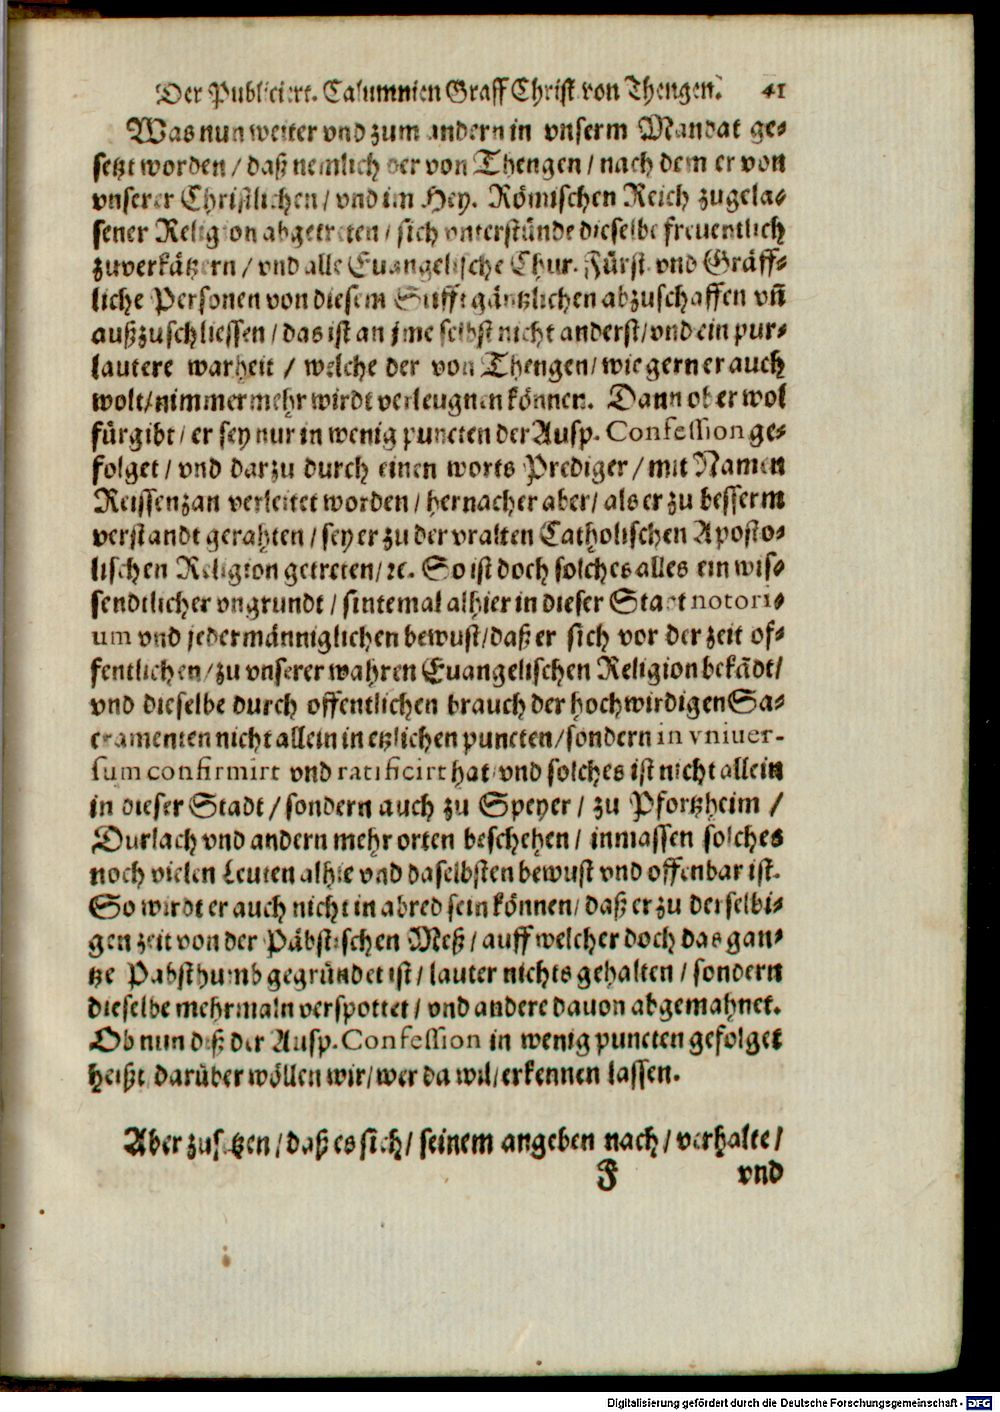 Der Publiciert. Calumnien Graff Christ. von Thengen. 41
Was nun weiter vnd zum andern in vnserm Mandat ge-
setzt worden / daß nemlich der von Thengen / nach dem er von
vnserer Christlichen / vnd im Hey. Römischen Reich zugelas-
sener Religion abgetretten / sich vnterstünde dieselbe freuentlich
zuverkätzern / vnd alle Euangelische Chur. Fürst. vnd Gräff-
liche Personen von diesem Stifft gäntzlichen abzuschaffen vñ
außzuschliessen / das ist an jme selbst nicht anderst / vnd ein pur-
lautere warheit / welche der von Thengen / wie gern er auch
wolt / nimmermehr wirdt verleugnen können. Dann ob er wol
fürgibt / er sey nur in wenig puncten der Ausp. Confession ge-
folget / vnd darzu durch einen worts Prediger / mit Namen
Reissenzan verleitet worden / hernacher aber / als er zu besserm
verstandt gerahten / sey er zu der vralten Catholischen Aposto-
lischen Religion getreten / ꝛc. So ist doch solches alles ein wis-
sendtlicher vngrundt / sintemal alhier in dieser Statt notori-
um vnd jedermänniglichen bewust / daß er sich vor der zeit of-
fentlichen / zu vnserer wahren Euangelischen Religion bekãdt /
vnd dieselbe durch offentlichen brauch der hochwirdigen Sa-
cramenten nicht allein in etzlichen puncten / sondern in vniuer-
sum confirmirt vnd ratificirt hat / vnd solches ist nicht allein
in dieser Stadt / sondern auch zu Speyer / zu Pfortzheim /
Durlach vnd andern mehr orten beschehen / inmassen solches
noch vielen Leuten alhie vnd daselbsten bewust vnd offenbar ist.
So wirdt er auch nicht in abred sein können / daß er zu derselbi-
gen zeit von der Päbstischen Meß / auff welcher doch das gan-
tze Pabsthumb gegründet ist / lauter nichts gehalten / sondern
dieselbe mehrmaln verspottet / vnd andere dauon abgemahnet.
Ob nun diß der Ausp. Confession in wenig puncten gefolget
heißt darüber wöllen wir / wer da wil / erkennen lassen.
Aber zusetzen / daß es sich / seinem angeben nach / verhalte /
J vnd
Digitalisierung gefördert durch die Deutsche Forschungsgemeinschaft - DFG